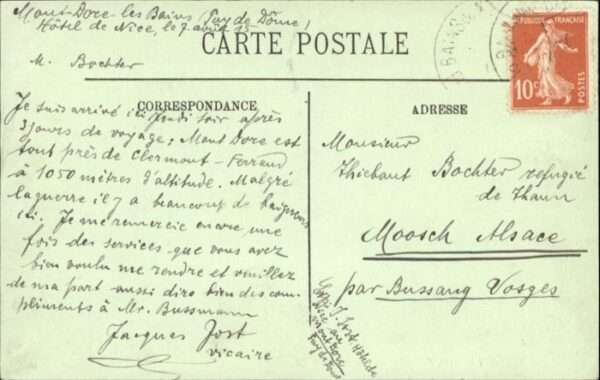 Mont-Dore-les Bains (Puy de Dôme)
Hôtel de Nice, le 7 août 15
CARTE POSTALE
M. Bochter
CORRESPONDANCE
Je suis arrivé ici jeudi soir après
3 jours de voyage; Mont Dore est
tout près de Clermont-Ferrand
à 1050 mètres d'altitude. Malgré
la guerre il y a beaucoup de baigneurs
ici. Je me remercie encore une
fois des services que vous avez
bien voulu me rendre et veuillez
de ma part aussi dire bien des com-
pliments à Mr. Bussmann
Jacques Jost
vicaire
ADRESSE
Monsieur
Thiebaut Bochter refugié
de Thann
Moosch Alsace
par Bussang Vosges
J. Jost Hôtel de
Nice au
Mont Dore
Puy de Dôme
REPUBLIQUE FRANÇAISE
10c
POSTES